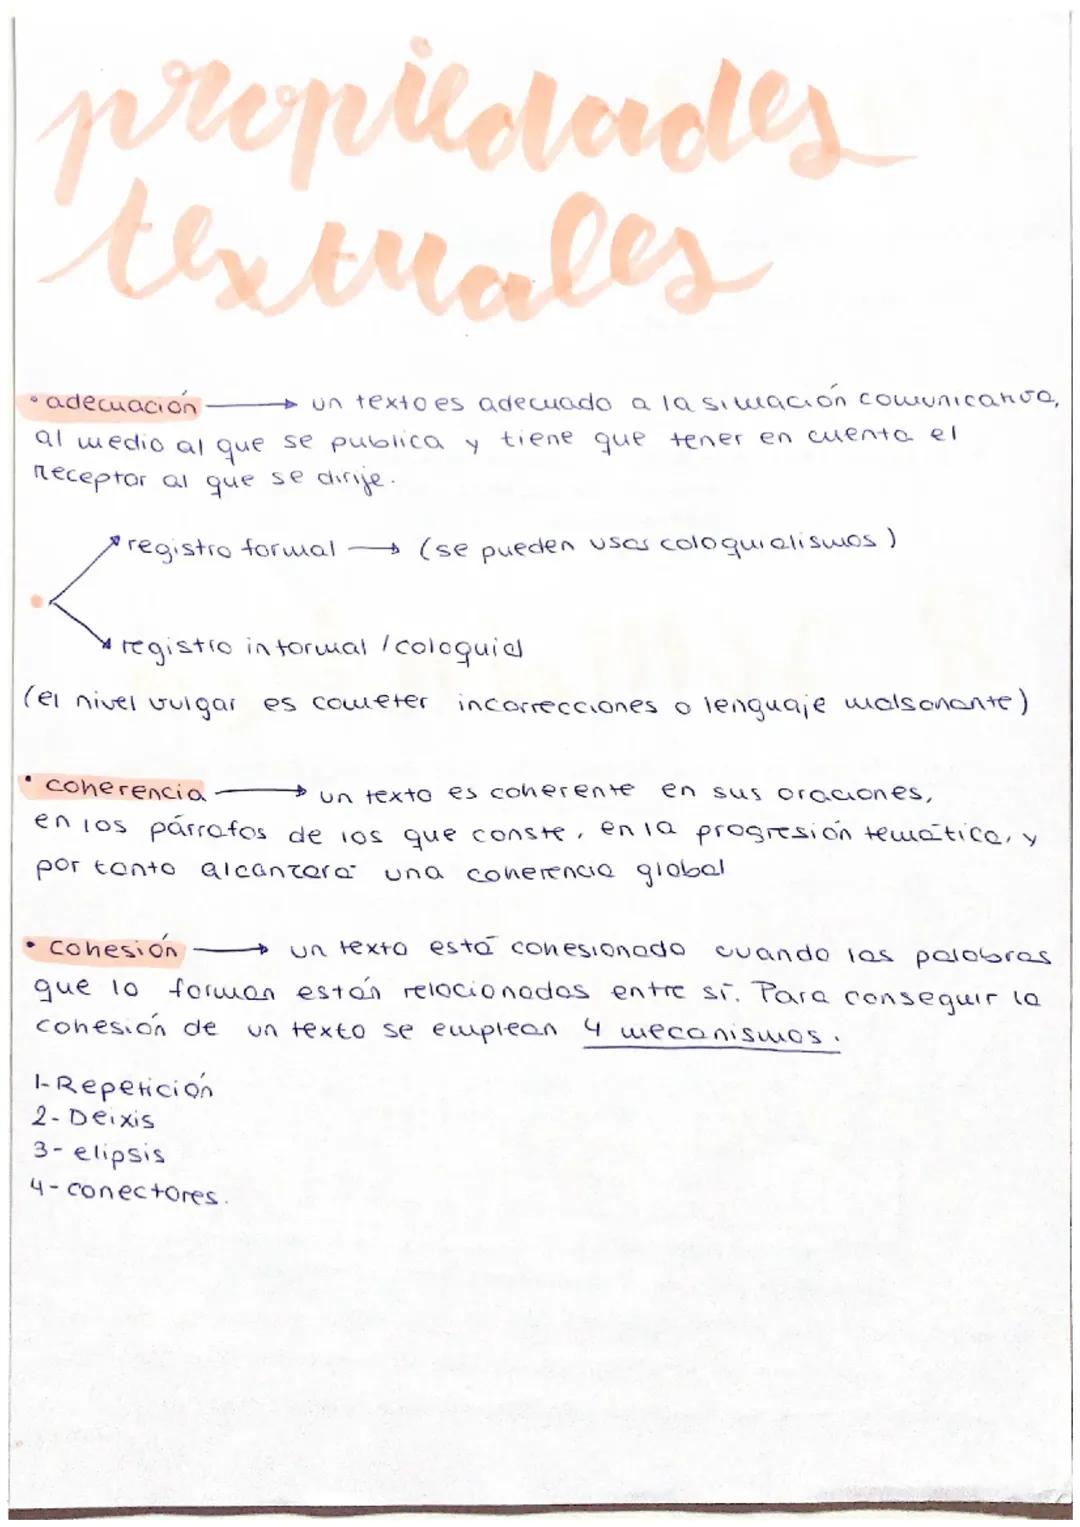 propiedades
textuales
• adecuación → un texto es adecuado a la situación comunicativa,
al medio al que se publica y tiene que tener en cuenta el
receptor al que se dirije.
registro formal → (se pueden usar coloquialismos)
registro informal / coloquial
(el nivel vulgar es cometer incorrecciones o lenguaje malsonante)
• coherencia → un texto es coherente en sus oraciones,
en los párrafos de los que conste, en la progresión temática, y
por tanto alcanzará una coherencia global
• cohesión → un texto está cohesionado cuando las palabras
que lo forman están relacionadas entre sí. Para conseguir la
cohesión de un texto se emplean 4 mecanismos.
1- Repetición
2- Deixis
3- elipsis
4- conectores.